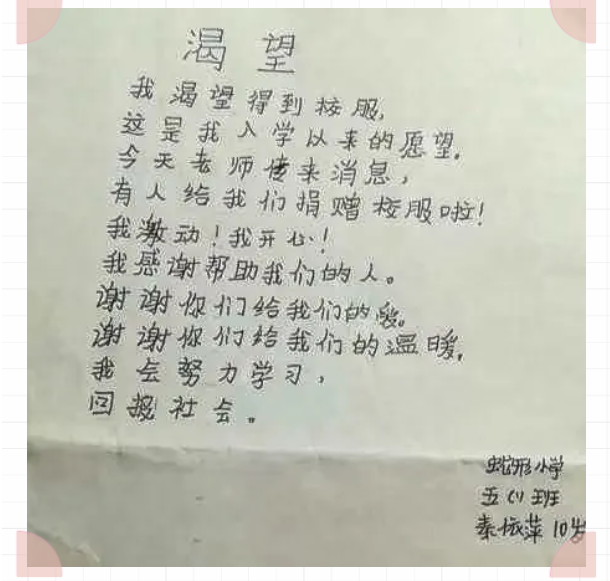 渴望
我渴望得到校服,
这是我入学以来的愿望.
今天老师传来消息,
有人给我们捐赠校服啦!
我激动!我开心!
我感谢帮助我们的人。
谢谢你们给我们的爱。
谢谢你们给我们的温暖.
我会努力学习,
回报社会。
蛇形小学
五(1)班
秦振萍 10岁